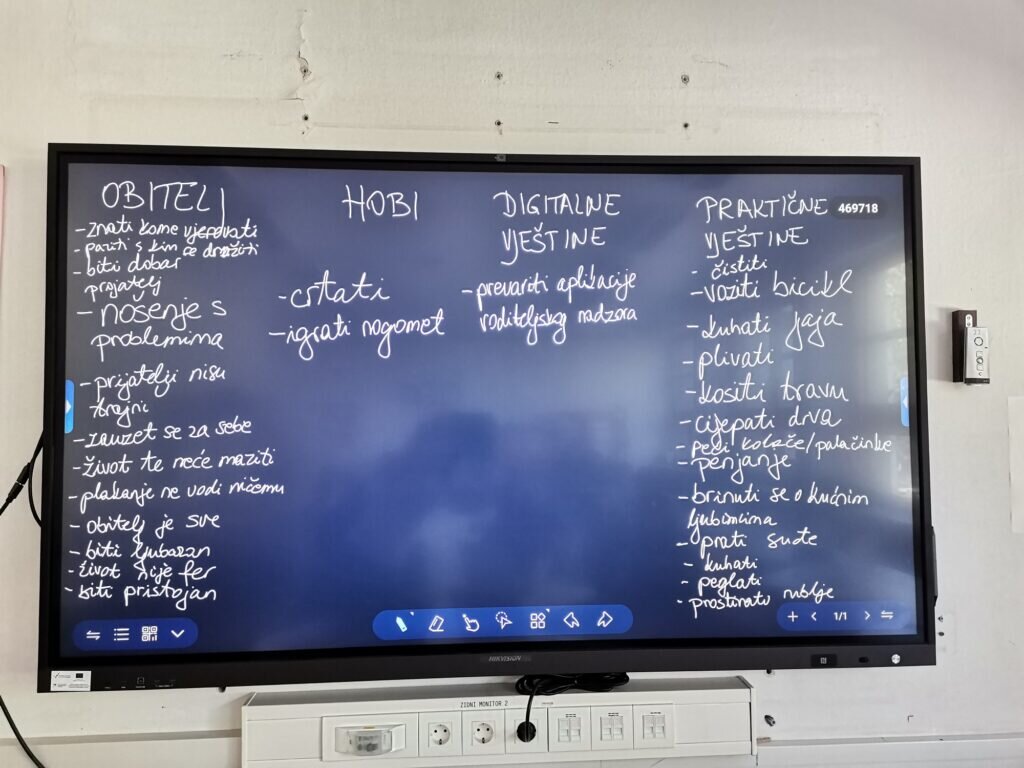 OBITELJ
- znati kome vjerovati
- paziti s kim se družiti
- biti dobar
prijatelj
- nošenje s
problemima
- prijatelji nisu
trajni
- zauzet se za sebe
- život te neće maziti
- plakanje ne vodi ničemu
- obitelj je sve
- biti ljubazan
- život nije fer
- biti pristojan
HOBI
- crtati
- igrati nogomet
DIGITALNE
VJEŠTINE
- prevariti aplikacije
roditeljskog nadzora
PRAKTIČNE
VJEŠTINE
469718
- čistiti
- voziti bicikl
- kuhati jaja
- plivati
- kositi travu
- cijepati drva
- peći kolače/palačinke
- penjanje
- brinuti se o kućnim
ljubimcima
- prati suđe
- kuhati
- peglati
- prostirati rublje
1/1
HIKVISION
ZIDNI MONITOR 2